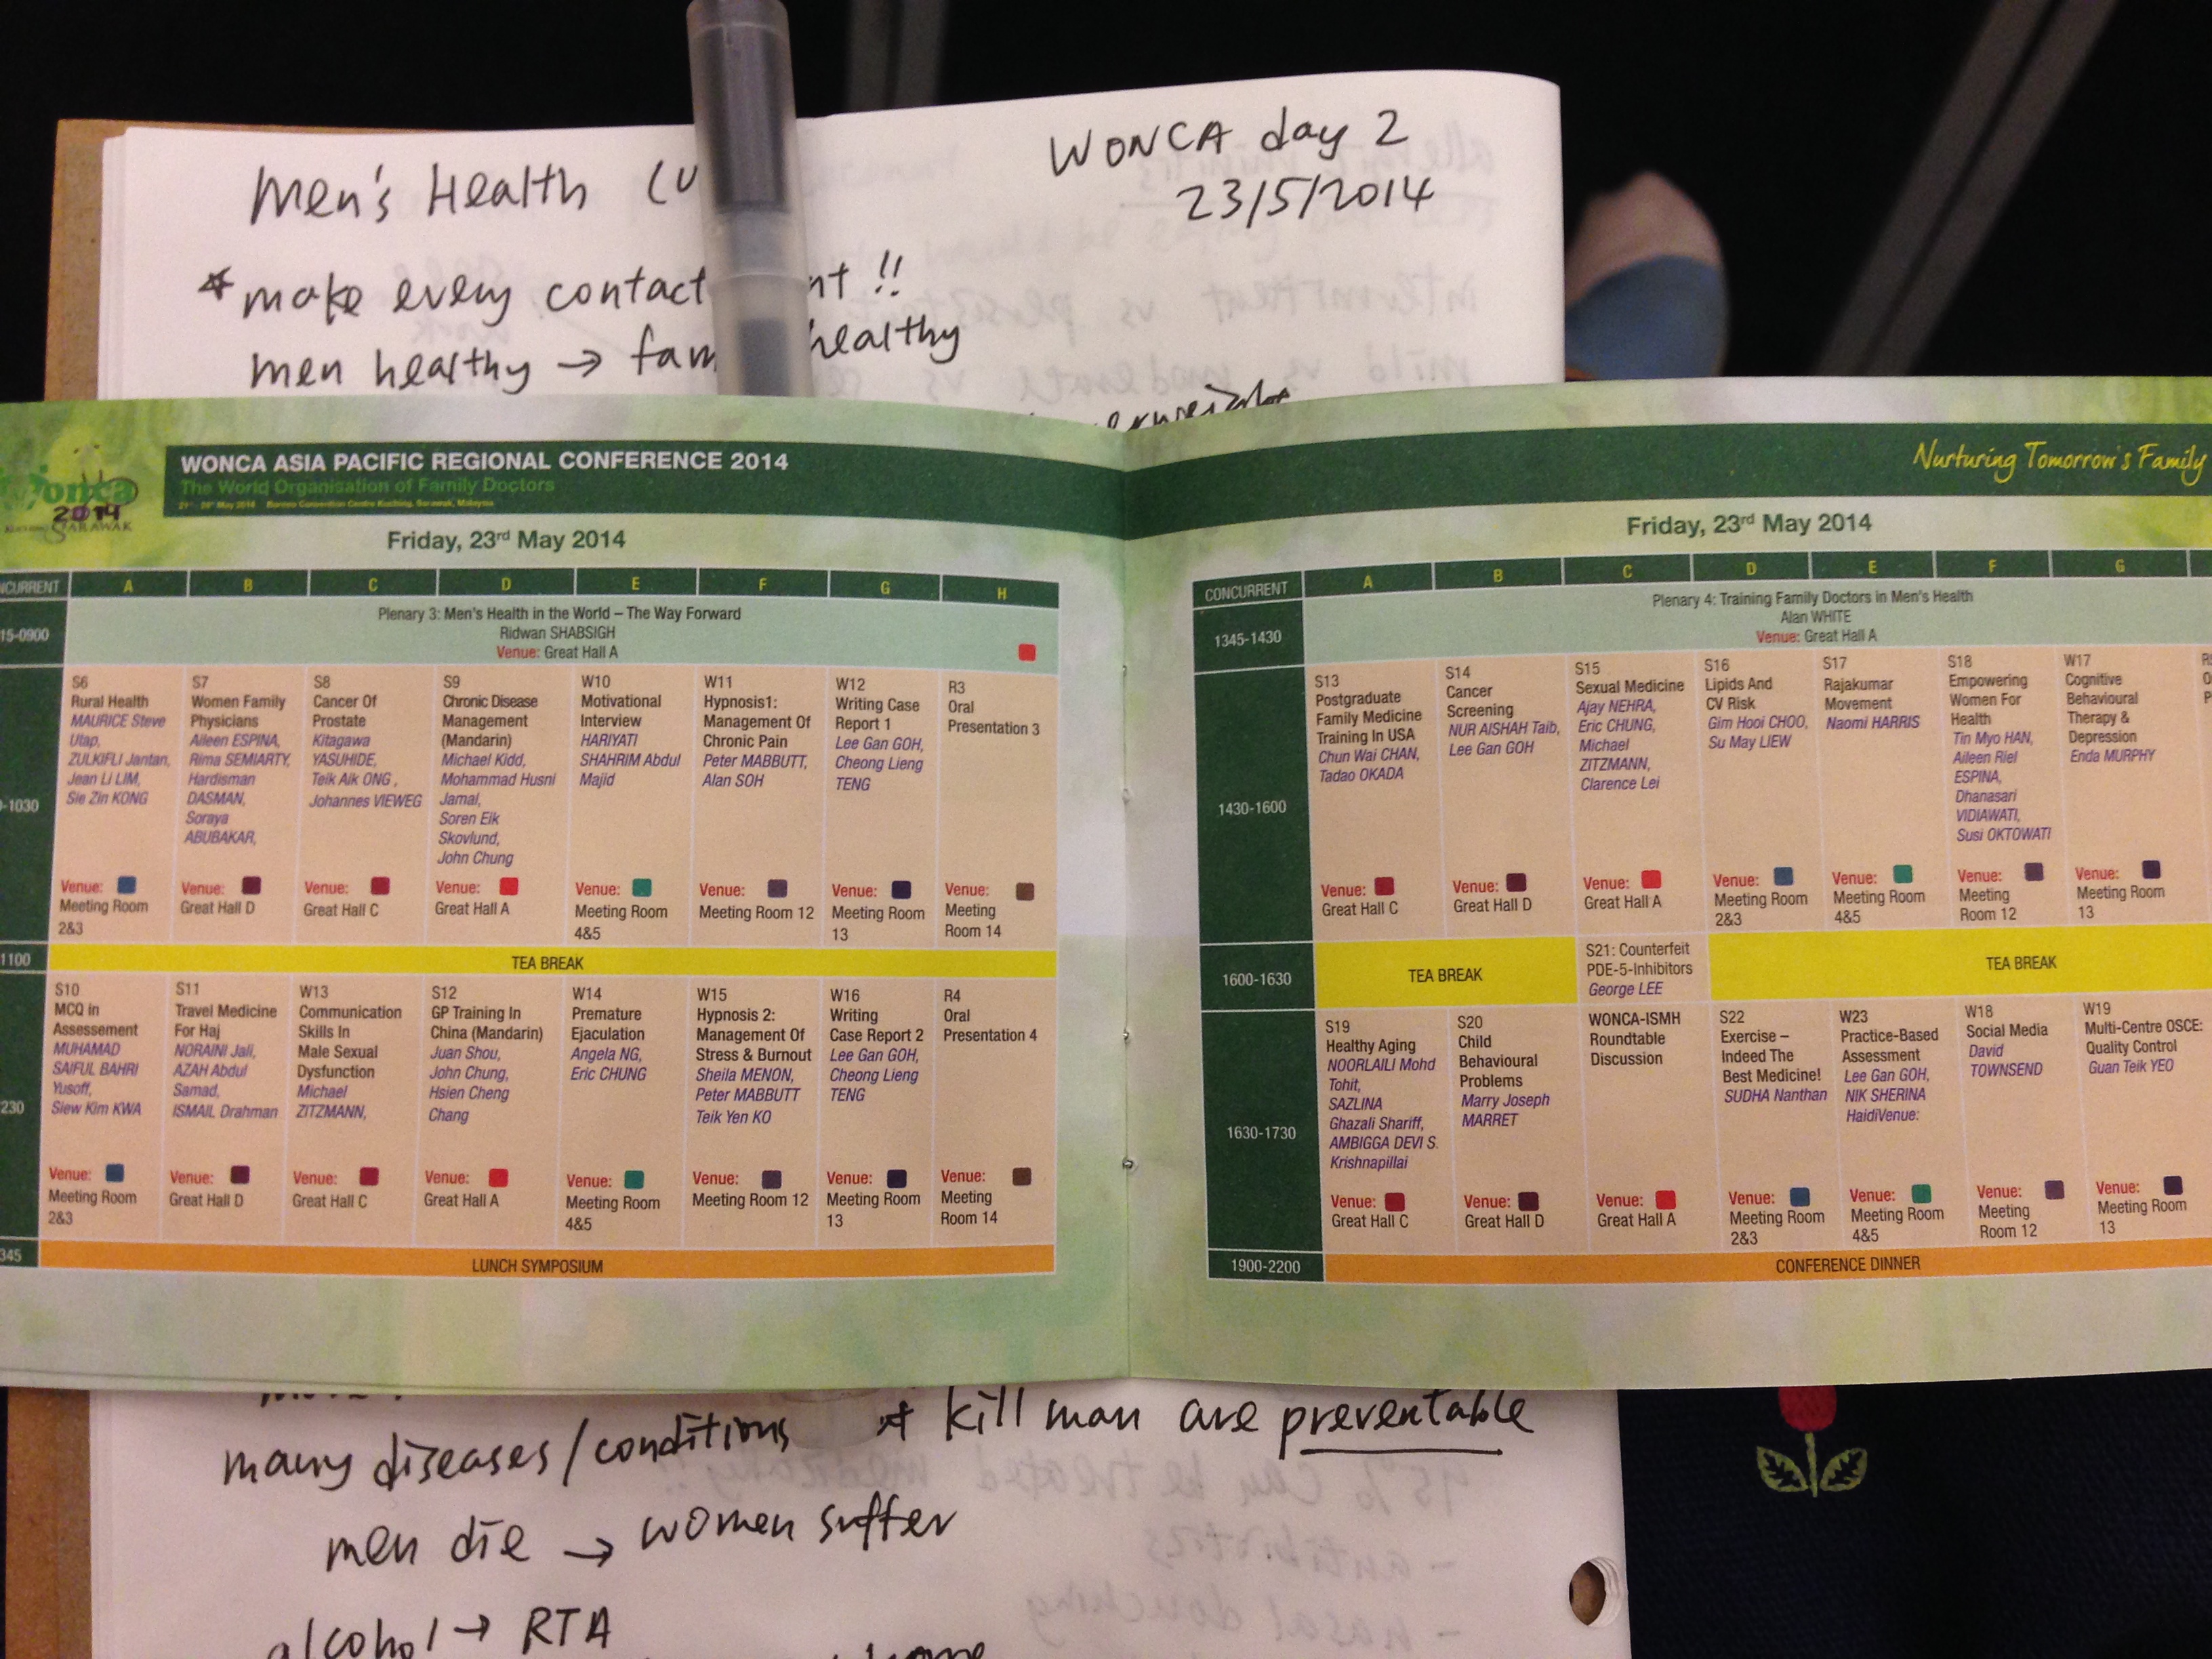 Men's Health
WONCA day 2
23/5/2014
* make every contact !!
men healthy → healthy
WONCA ASIA PACIFIC REGIONAL CONFERENCE 2014
The World Organisation of Family Doctors
Borneo Convention Centre Kuching, Sarawak, Malaysia
wonca
2014
SARAWAK
Friday, 23rd May 2014
A B C D E F G H
Plenary 3: Men's Health in the World – The Way Forward
Ridwan SHABSIGH
Venue: Great Hall A
S6
Rural Health
MAURICE Steve
Utap,
ZULKIFLI Jantan,
Jean Li LIM,
Sie Zin KONG
Venue:
Meeting Room
2&3
S7
Women Family
Physicians
Aileen ESPINA,
Rima SEMIARTY,
Hardisman
DASMAN,
Soraya
ABUBAKAR,
Venue:
Great Hall D
S8
Cancer Of
Prostate
Kitagawa
YASUHIDE,
Teik Aik ONG ,
Johannes VIEWEG
Venue:
Great Hall C
S9
Chronic Disease
Management
(Mandarin)
Michael Kidd,
Mohammad Husni
Jamal,
Soren Eik
Skovlund,
John Chung
Venue:
Great Hall A
W10
Motivational
Interview
HARIYATI
SHAHRIM Abdul
Majid
Venue:
Meeting Room
4&5
W11
Hypnosis1:
Management Of
Chronic Pain
Peter MABBUTT,
Alan SOH
Venue:
Meeting Room 12
W12
Writing Case
Report 1
Lee Gan GOH,
Cheong Lieng
TENG
Venue:
Meeting Room
13
R3
Oral
Presentation 3
Venue:
Meeting
Room 14
-1030
1100
TEA BREAK
S10
MCQ in
Assessement
MUHAMAD
SAIFUL BAHRI
Yusoff,
Siew Kim KWA
Venue:
Meeting Room
2&3
S11
Travel Medicine
For Haj
NORAINI Jali,
AZAH Abdul
Samad,
ISMAIL Drahman
Venue:
Great Hall D
W13
Communication
Skills In
Male Sexual
Dysfunction
Michael
ZITZMANN,
Venue:
Great Hall C
S12
GP Training In
China (Mandarin)
Juan Shou,
John Chung,
Hsien Cheng
Chang
Venue:
Great Hall A
W14
Premature
Ejaculation
Angela NG,
Eric CHUNG
Venue:
Meeting Room
4&5
W15
Hypnosis 2:
Management Of
Stress & Burnout
Sheila MENON,
Peter MABBUTT
Teik Yen KO
Venue:
Meeting Room 12
W16
Writing
Case Report 2
Lee Gan GOH,
Cheong Lieng
TENG
Venue:
Meeting Room
13
R4
Oral
Presentation 4
Venue:
Meeting
Room 14
230
345
LUNCH SYMPOSIUM
Nurturing Tomorrow's Family
Friday, 23rd May 2014
CONCURRENT A B C D E F G
1345-1430
Plenary 4: Training Family Doctors in Men's Health
Alan WHITE
Venue: Great Hall A
1430-1600
S13
Postgraduate
Family Medicine
Training In USA
Chun Wai CHAN,
Tadao OKADA
Venue:
Great Hall C
S14
Cancer
Screening
NUR AISHAH Taib,
Lee Gan GOH
Venue:
Great Hall D
S15
Sexual Medicine
Ajay NEHRA,
Eric CHUNG,
Michael
ZITZMANN,
Clarence Lei
Venue:
Great Hall A
S16
Lipids And
CV Risk
Gim Hooi CHOO,
Su May LIEW
Venue:
Meeting Room
2&3
S17
Rajakumar
Movement
Naomi HARRIS
Venue:
Meeting Room
4&5
S18
Empowering
Women For
Health
Tin Myo HAN,
Aileen Riel
ESPINA,
Dhanasari
VIDIAWATI,
Susi OKTOWATI
Venue:
Meeting
Room 12
W17
Cognitive
Behavioural
Therapy &
Depression
Enda MURPHY
Venue:
Meeting Room
13
1600-1630
TEA BREAK
S21: Counterfeit
PDE-5-Inhibitors
George LEE
TEA BREAK
1630-1730
S19
Healthy Aging
NOORLAILI Mohd
Tohit,
SAZLINA
Ghazali Shariff,
AMBIGGA DEVI S.
Krishnapillai
Venue:
Great Hall C
S20
Child
Behavioural
Problems
Marry Joseph
MARRET
Venue:
Great Hall D
WONCA-ISMH
Roundtable
Discussion
Venue:
Great Hall A
S22
Exercise –
Indeed The
Best Medicine!
SUDHA Nanthan
Venue:
Meeting Room
2&3
W23
Practice-Based
Assessment
Lee Gan GOH,
NIK SHERINA
HaidiVenue:
Venue:
Meeting Room
4&5
W18
Social Media
David
TOWNSEND
Venue:
Meeting
Room 12
W19
Multi-Centre OSCE:
Quality Control
Guan Teik YEO
Venue:
Meeting Room
13
1900-2200
CONFERENCE DINNER
many diseases/conditions * kill man are preventable
men die → women suffer
alcohol → RTA